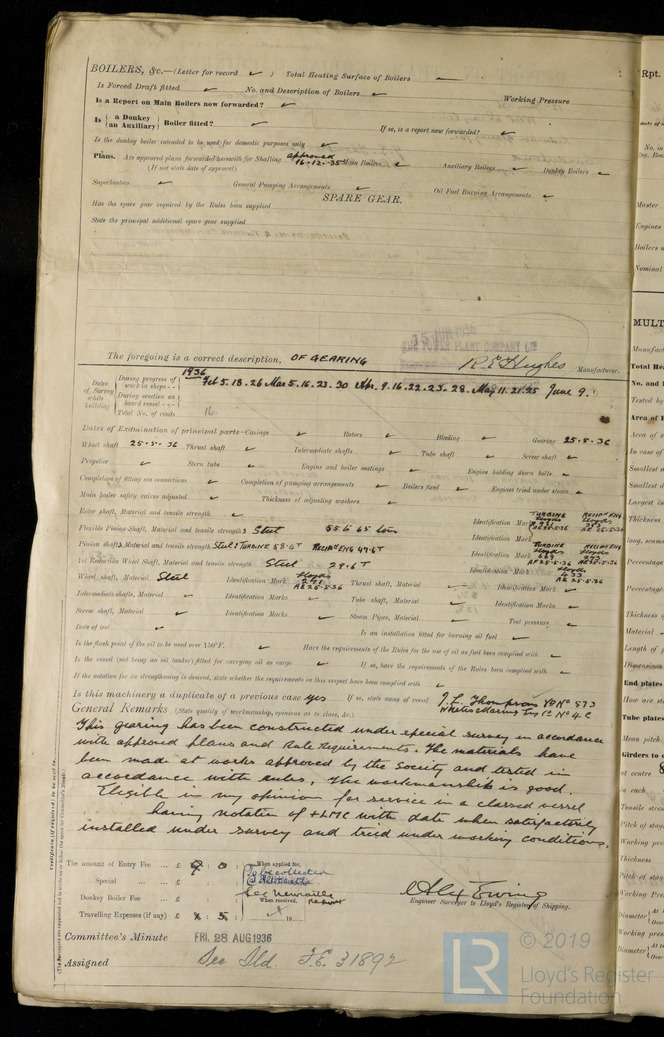 BOILERS, &c.—(Letter for record ✓ ) Total Heating Surface of Boilers —
Is Forced Draft fitted ✓ No. and Description of Boilers ✓ Working Pressure
Is a Report on Main Boilers now forwarded? ✓
Is { a Donkey / an Auxiliary } Boiler fitted? ✓ If so, is a report now forwarded? ✓
Is the donkey boiler intended to be used for domestic purposes only ✓
Plans. Are approved plans forwarded herewith for Shafting approved 16.12.35 Main Boilers ✓ Auxiliary Boilers ✓ Donkey Boilers ✓
(If not state date of approval)
Superheaters ✓ General Pumping Arrangements ✓ Oil Fuel Burning Arrangements ✓
SPARE GEAR.
Has the spare gear required by the Rules been supplied
State the principal additional spare gear supplied
THE POWER PLANT COMPANY LTD
The foregoing is a correct description, OF GEARING R E Hughes Manufacturer.
Dates of Survey while building
During progress of work in shops - - 1936 Feb 5. 18. 26 Mar 5. 16. 23. 30 Apr. 9. 16. 22. 23. 28. May 11. 21. 25 June 9.
During erection on board vessel - - -
Total No. of visits 16
Dates of Examination of principal parts—Casings ✓ Rotors ✓ Blading ✓ Gearing 25.5.36
Wheel shaft 25.5.36 Thrust shaft ✓ Intermediate shafts ✓ Tube shaft ✓ Screw shaft ✓
Propeller ✓ Stern tube ✓ Engine and boiler seatings ✓ Engine holding down bolts ✓
Completion of fitting sea connections ✓ Completion of pumping arrangements ✓ Boilers fixed ✓ Engines tried under steam ✓
Main boiler safety valves adjusted ✓ Thickness of adjusting washers ✓
Rotor shaft, Material and tensile strength ✓ Identification Mark TURBINE Lloyds AE 25.5.36 RECIP ENG Lloyds AE 25.5.36
Flexible Pinion Shaft, Material and tensile strength Steel 55 to 65 tons Identification Mark
Pinion shafts, Material and tensile strength Steel TURBINE 58.6T RECIP ENG 47.6T Identification Mark TURBINE Lloyds 669 AE 25.5.36 RECIP ENG Lloyds AE 25.5.36
1st Reduction Wheel Shaft, Material and tensile strength Steel 29.6T Identification Mark Lloyds 633 AE 25.5.36
Wheel shaft, Material Steel Identification Mark Lloyds 271 AE 25.5.36 Thrust shaft, Material ✓ Identification Mark ✓
Intermediate shafts, Material ✓ Identification Marks ✓ Tube shaft, Material ✓ Identification Marks ✓
Screw shaft, Material ✓ Identification Marks ✓ Steam Pipes, Material ✓ Test pressure ✓
Date of test ✓ Is an installation fitted for burning oil fuel ✓
Is the flash point of the oil to be used over 150°F. ✓ Have the requirements of the Rules for the use of oil as fuel been complied with ✓
Is the vessel (not being an oil tanker) fitted for carrying oil as cargo ✓ If so, have the requirements of the Rules been complied with ✓
If the notation for ice strengthening is desired, state whether the requirements in this respect have been complied with ✓
Is this machinery a duplicate of a previous case yes If so, state name of vessel J. L. Thompsons Yd No 573
Whites Marine Eng Co No 4. C
General Remarks (State quality of workmanship, opinions as to class, &c.)
This gearing has been constructed under special survey in accordance
with approved plans and Rule Requirements. The materials have
been made at works approved by the Society and tested in
accordance with rules, the workmanship is good.
Eligible in my opinion for service in a classed vessel
having notation of +LMC with date when satisfactorily
installed under survey and tried under working conditions.
The amount of Entry Fee ... £ : 0 : When applied for,
To be collected
Special ... ... £ : :
See Newcastle report
Donkey Boiler Fee ... £ : : When received,
Travelling Expenses (if any) £ : 5 : 19
Alex Ewing
Engineer Surveyor to Lloyd's Register of Shipping.
Committee's Minute FRI. 28 AUG 1936
Assigned See Sld. F.E. 31892
Certificate (if required) to be sent to
Rpt.
MULT
© 2019
LR
Lloyd's Register
Foundation